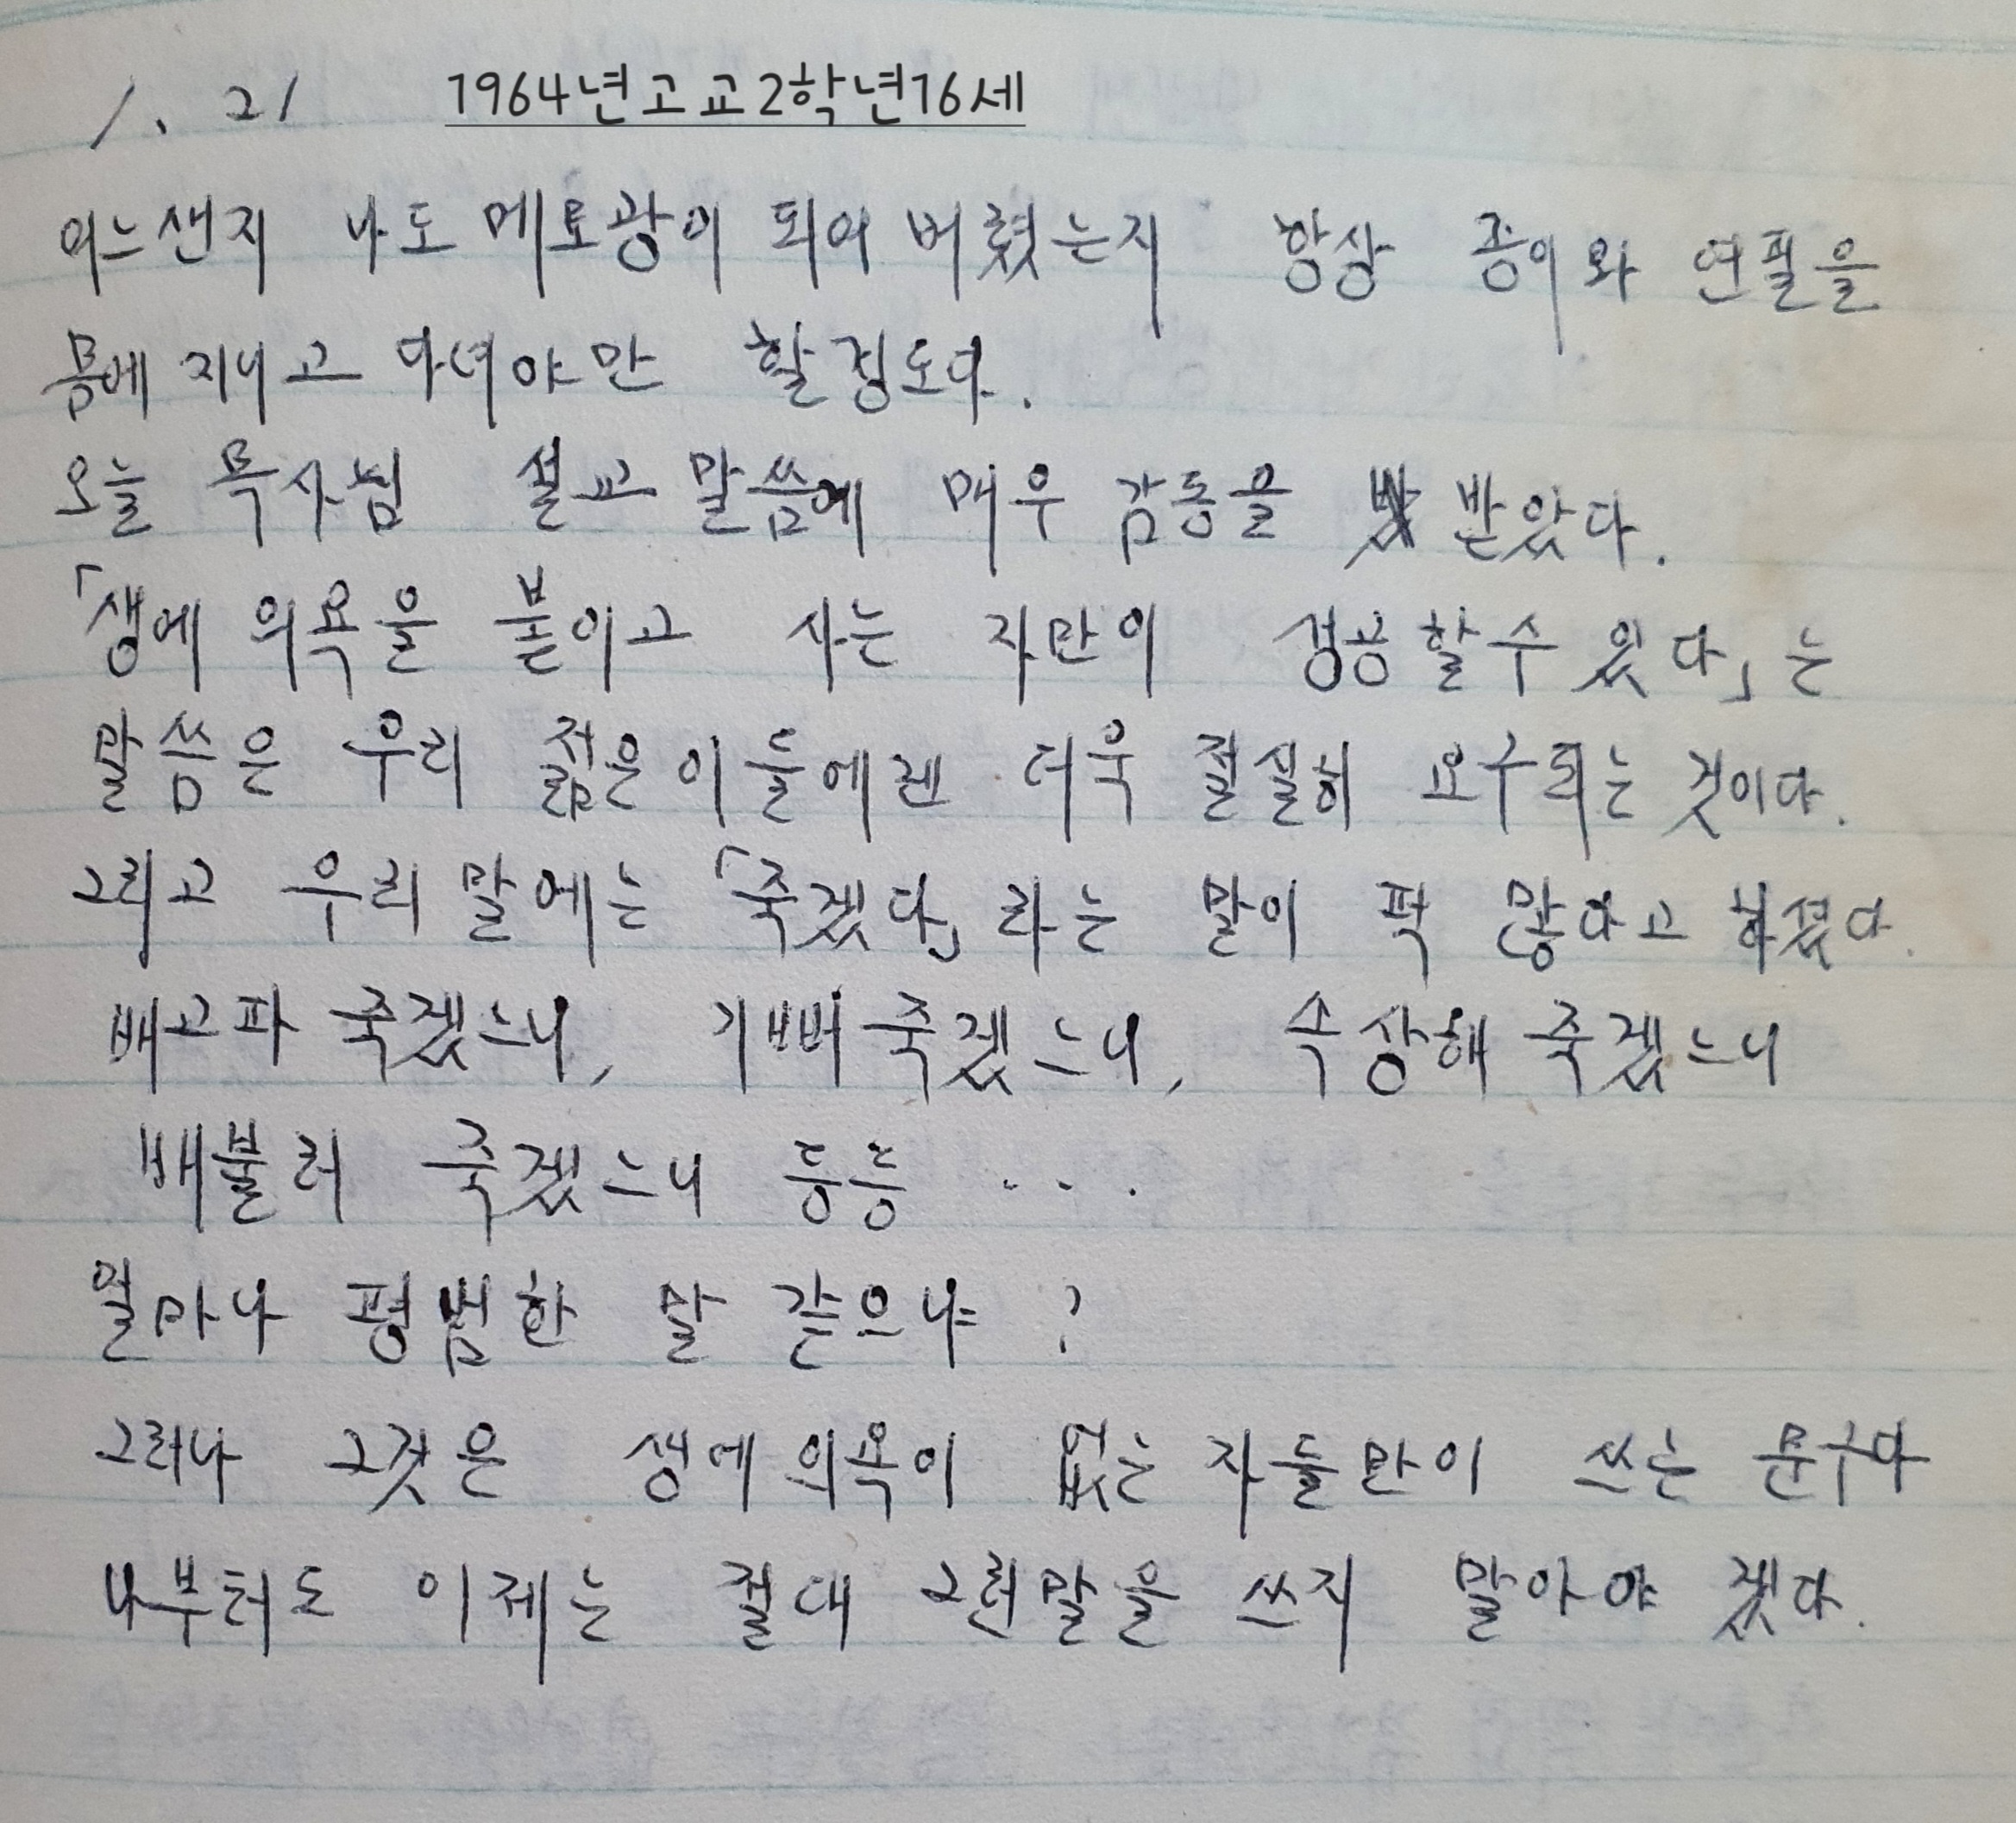 1. 21 1964년고교2학년16세
어느샌지 나도 메모광이 되어 버렸는지 항상 종이와 연필을
몸에 지니고 다녀야만 할 정도다.
오늘 목사님 설교 말씀에 매우 감동을 받았다.
「생에 의욕을 붙이고 사는 자만이 성공할수 있다」는
말씀은 우리 젊은이들에겐 더욱 절실히 요구되는 것이다.
그리고 우리 말에는 「죽겠다」라는 말이 퍽 많다고 하셨다.
배고파 죽겠느니, 기뻐 죽겠느니, 속상해 죽겠느니
배불러 죽겠느니 등등 ...
얼마나 평범한 말 같으냐 ?
그러나 그것은 생에 의욕이 없는 자들만이 쓰는 문구다
나부터도 이제는 절대 그런말을 쓰지 말아야 겠다.